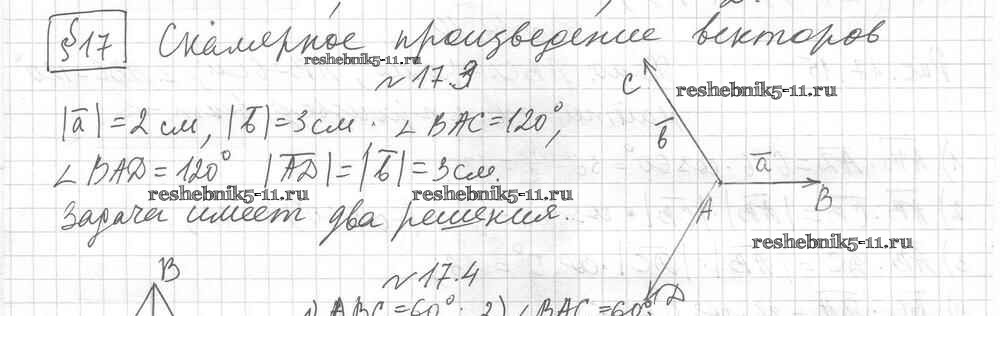 §17 Скалярное произведение векторов
reshebnik5-11.ru
№17.3
C
reshebnik5-11.ru
|a̅| = 2 см, |b̅| = 3 см. ∠BAC = 120°,
b̅
a̅
∠BAD = 120° |A̅D̅| = |b̅| = 3 см.
reshebnik5-11.ru reshebnik5-11.ru
A B
Задача имеет два решения.
reshebnik5-11.ru
B
№17.4
D
1) ABC = 60°. 2) ∠BAC = 60°.